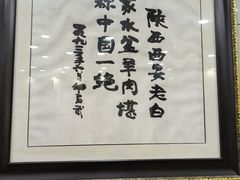 陕西西安老白
家水盆羊肉堪
称中国一绝